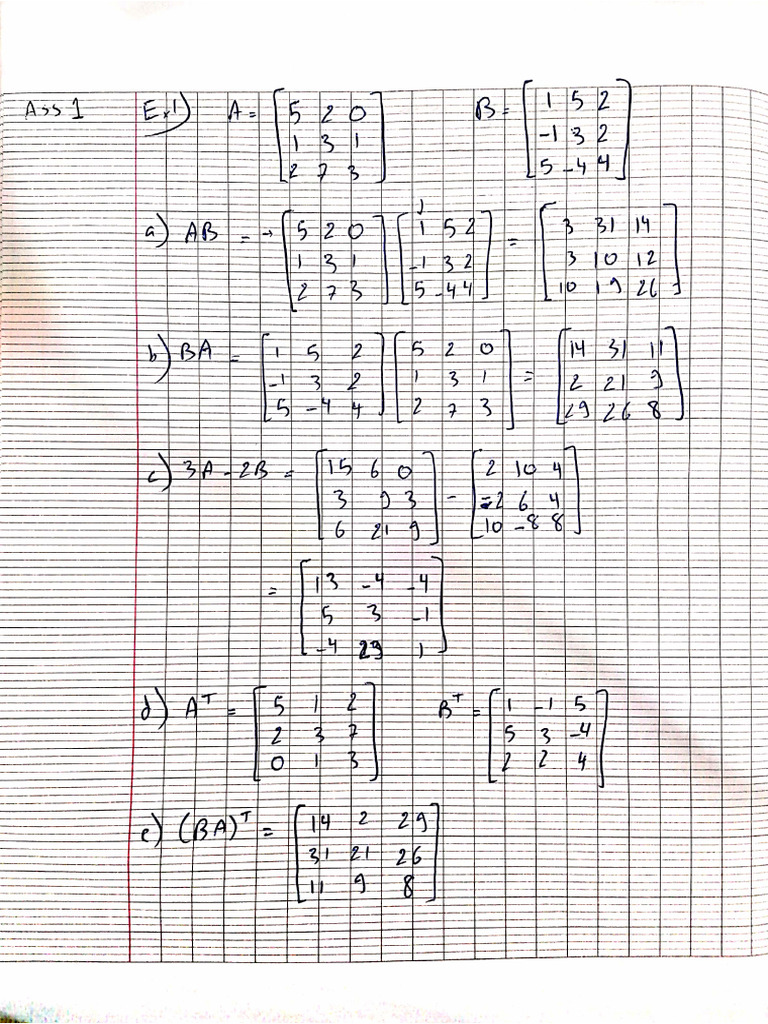 Ass 1 Ex1) A = [5 2 0; 1 3 1; 2 7 3] B = [1 5 2; -1 3 2; 5 -4 4]
a) AB = → [5 2 0; 1 3 1; 2 7 3] ↓ [1 5 2; -1 3 2; 5 -4 4] = [3 31 14; 3 10 12; 10 19 26]
b) BA = [1 5 2; -1 3 2; 5 -4 4] [5 2 0; 1 3 1; 2 7 3] = [14 31 11; 2 21 9; 29 26 8]
c) 3A - 2B = [15 6 0; 3 9 3; 6 21 9] - [2 10 4; -2 6 4; 10 -8 8]
= [13 -4 -4; 5 3 -1; -4 29 1]
d) Aᵀ = [5 1 2; 2 3 7; 0 1 3] Bᵀ = [1 -1 5; 5 3 -4; 2 2 4]
e) (BA)ᵀ = [14 2 29; 31 21 26; 11 9 8]